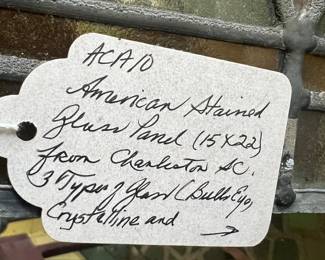 ACA10
American Stained
Glass Panel (15X22)
from Charleston SC.
3 Types of Glass (Bulls Eye,
Crystalline and →